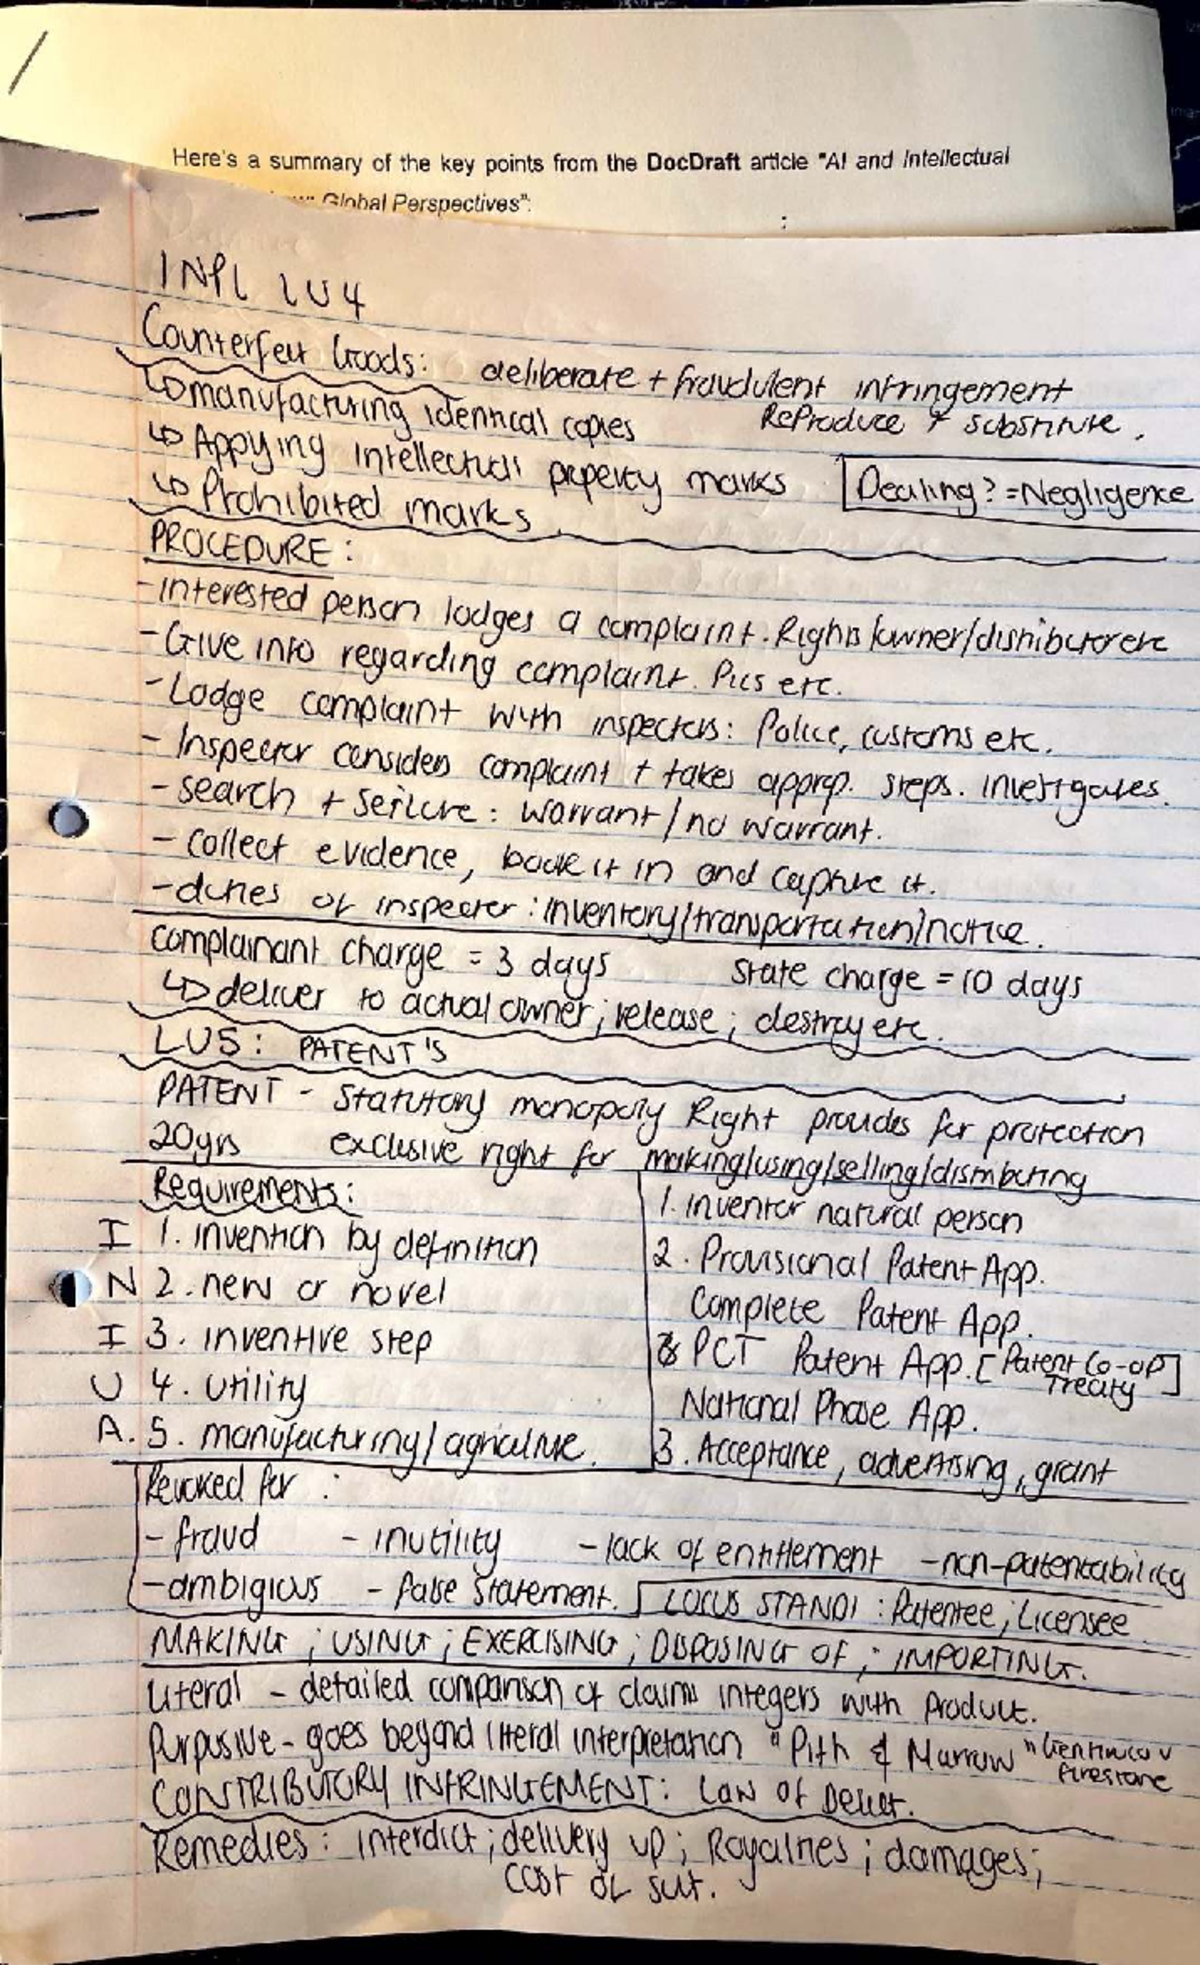 Here's a summary of the key points from the DocDraft article "AI and Intellectual
Global Perspectives":
INPL LU4
Counterfeit Goods: deliberate + fraudulent infringement
↳ manufacturing identical copies Reproduce + substitute.
↳ Applying intellectual property marks Dealing? = Negligence
↳ Prohibited marks
PROCEDURE:
- Interested person lodges a complaint. Rights/owner/distributor etc
- Give info regarding complaint. Pics etc.
- Lodge complaint with inspectors: Police, customs etc.
- Inspector considers complaint + takes approp. steps. investigates.
- search + seizure: warrant/no warrant.
- collect evidence, book it in and capture it.
- duties of inspector: inventory/transportation/notice.
complainant charge = 3 days state charge = 10 days
↳ deliver to actual owner; release; destroy etc.
LU5: PATENT'S
PATENT - Statutory monopoly Right provides for protection
20yrs exclusive right for making/using/selling/distributing
Requirements:
I 1. invention by definition
N 2. new or novel
I 3. inventive step
U 4. utility
A. 5. manufacturing/agriculture.
1. inventor natural person
2. Provisional Patent App.
Complete Patent App.
PCT Patent App. [Patent Co-op Treaty]
National Phase App.
3. Acceptance, advertising, grant
Revoked for:
- fraud - inutility - lack of entitlement - non-patentability
- ambigious - false statement. LOCUS STANDI: Patentee; Licensee
MAKING; USING; EXERCISING; DISPOSING OF; IMPORTING.
Literal - detailed comparison of claims integers with product.
Purposive - goes beyond literal interpretation "Pith & Marrow" Gentiruco v Firestone
CONTRIBUTORY INFRINGEMENT: Law of Delict.
Remedies: interdict; delivery up; Royalties; damages;
cost of suit.